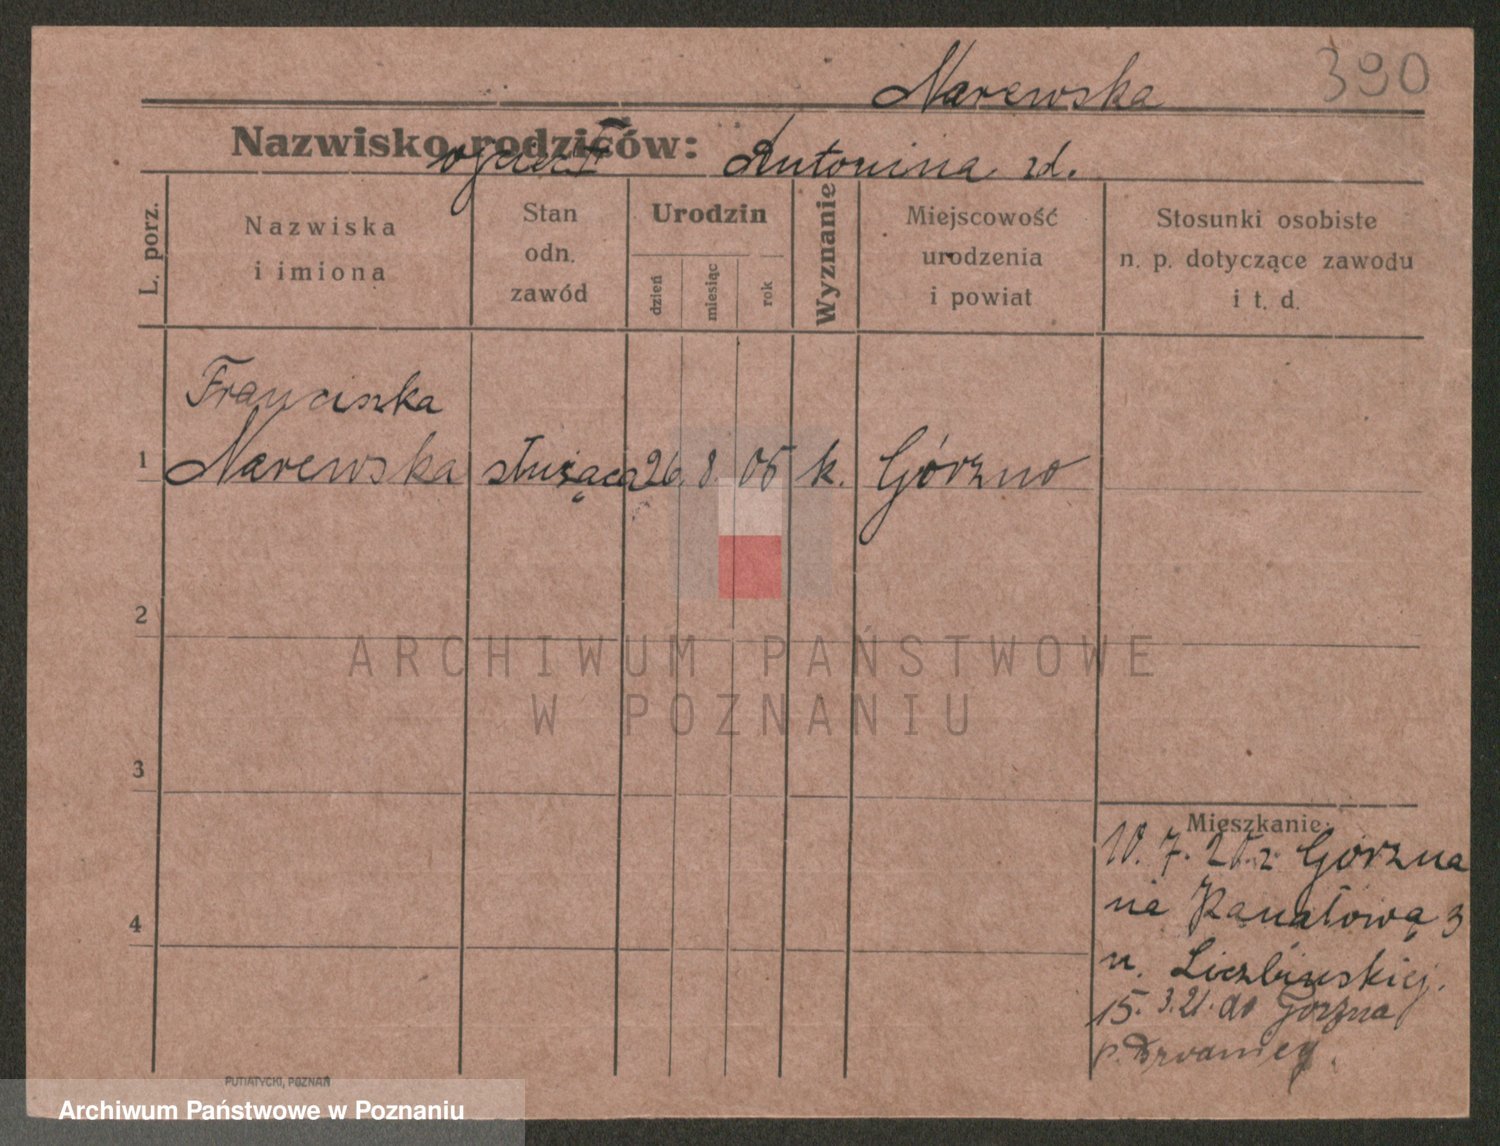 390
Narewska
Nazwisko rodziców: Antonina zd.
L. porz.
Nazwiska
i imiona
Stan
odn.
zawód
Urodzin
dzień
miesiąc
rok
Wyznanie
Miejscowość
urodzenia
i powiat
Stosunki osobiste
n. p. dotyczące zawodu
i t. d.
Franciszka
1 Narewska służąca 26. 8. 05 k. Górzno
2
ARCHIWUM PAŃSTWOWE
W POZNANIU
3
Mieszkanie:
10. 7. 20. z Górzna
na Kanałową 3
u. Liczbińskiej.
15. 3. 21. do Górzna
p.
4
PUTIATYCKI, POZNAŃ
Archiwum Państwowe w Poznaniu